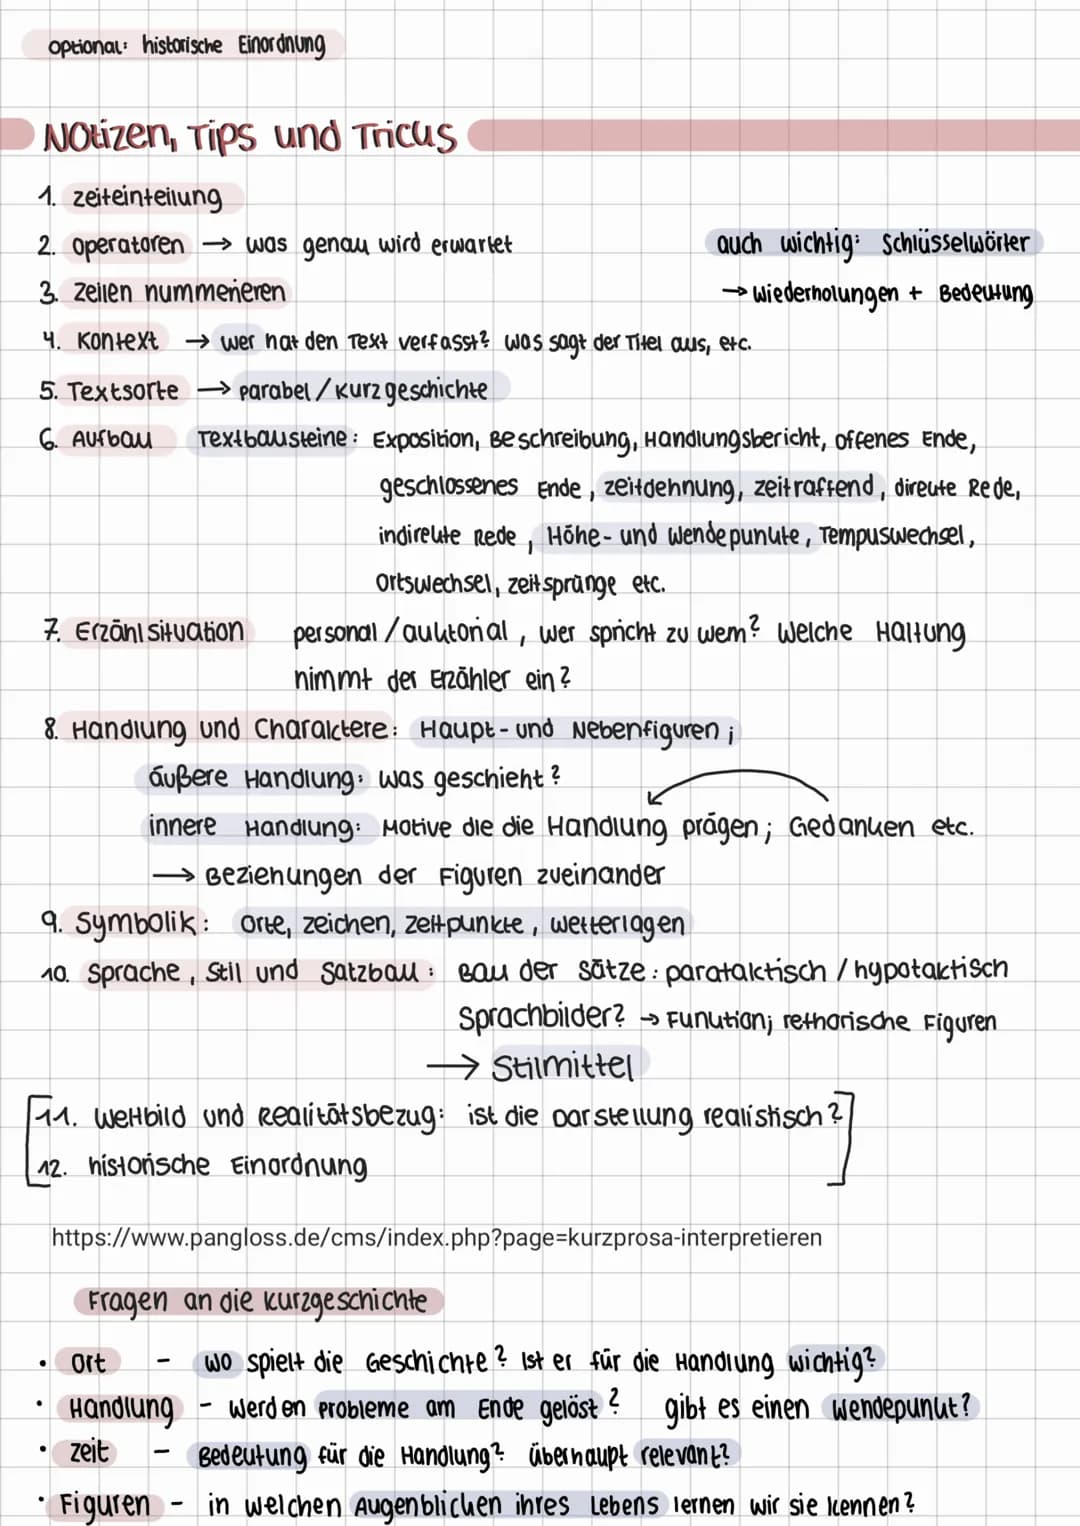 optional: historische Einordnung
Notizen, Tips und Tricks
1. Zeiteinteilung
2. Operatoren → was genau wird erwartet
auch wichtig: Schlüsselwörter
3. Zeilen nummerieren
→ Wiederholungen + Bedeutung
4. Kontext → wer hat den Text verfasst? was sagt der Titel aus, etc.
5. Textsorte → parabel / Kurzgeschichte
6. Aufbau Textbausteine: Exposition, Beschreibung, Handlungsbericht, offenes Ende,
geschlossenes Ende, zeitdehnung, zeitraffend, direkte Rede,
indirekte Rede, Höhe- und Wendepunkte, Tempuswechsel,
Ortswechsel, zeitsprünge etc.
7. Erzählsituation personal / auktorial, wer spricht zu wem? Welche Haltung
nimmt der Erzähler ein?
8. Handlung und Charaktere: Haupt- und Nebenfiguren;
äußere Handlung: was geschieht?
innere Handlung: Motive die die Handlung prägen; Gedanken etc.
→ Beziehungen der Figuren zueinander
9. Symbolik: Orte, zeichen, zeitpunkte, wetterlagen
10. Sprache, Stil und Satzbau: Bau der Sätze: parataktisch / hypotaktisch
Sprachbilder? → Funktion; rethorische Figuren
→ Stilmittel
[11. Weltbild und Realitätsbezug: ist die Darstellung realistisch?
12. historische Einordnung]
https://www.pangloss.de/cms/index.php?page=kurzprosa-interpretieren
Fragen an die Kurzgeschichte
• Ort - wo spielt die Geschichte? Ist er für die Handlung wichtig?
• Handlung - werden Probleme am Ende gelöst? gibt es einen Wendepunkt?
• zeit - Bedeutung für die Handlung? überhaupt relevant?
• Figuren - in welchen Augenblicken ihres Lebens lernen wir sie kennen?